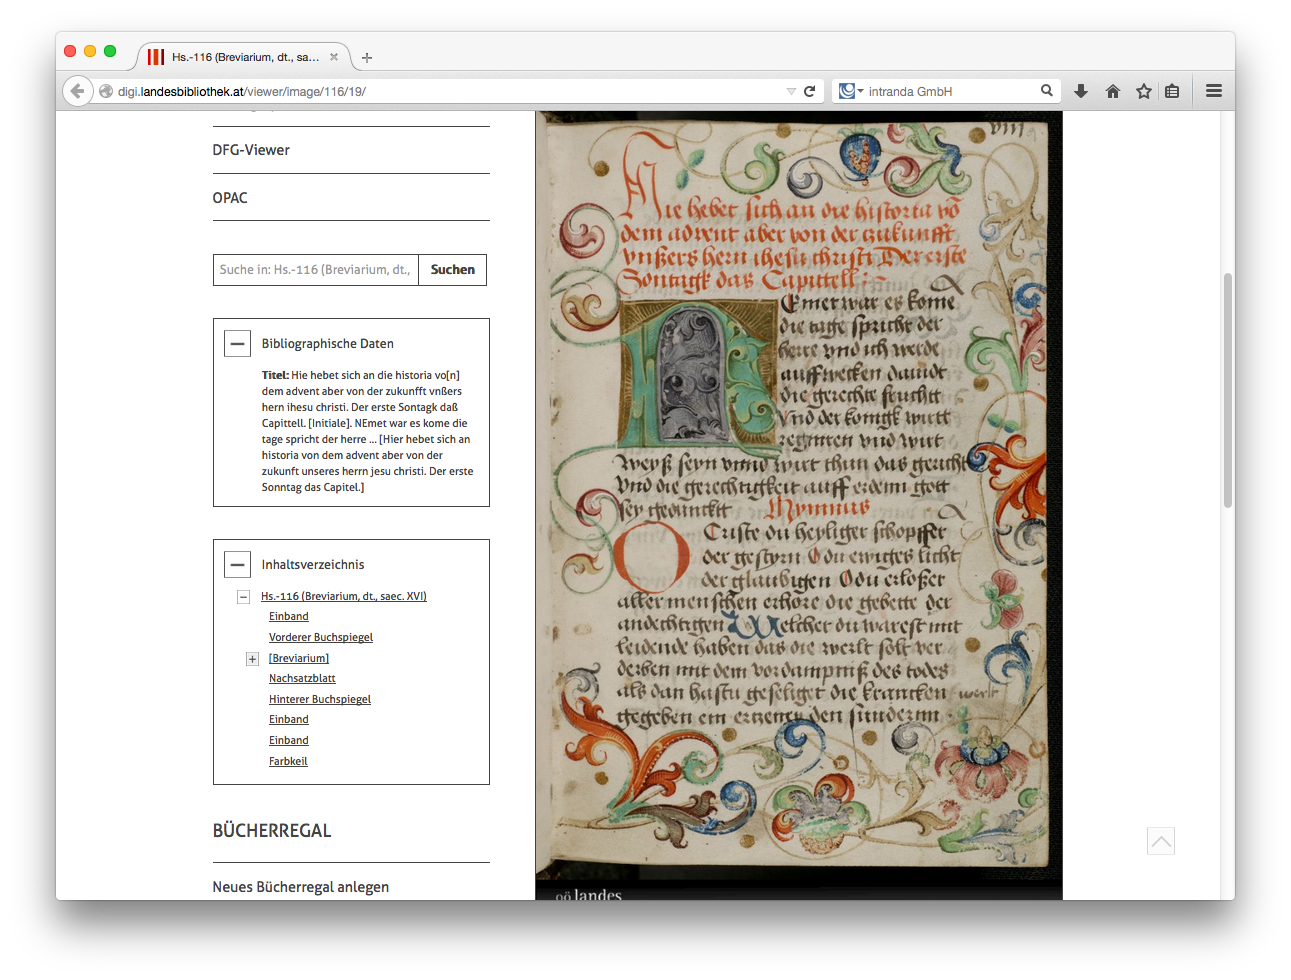 Hs.-116 (Breviarium, dt., sa...
digi.landesbibliothek.at/viewer/image/116/19/
intranda GmbH
DFG-Viewer
OPAC
Suche in: Hs.-116 (Breviarium, dt.,
Suchen
Bibliographische Daten
Titel: Hie hebet sich an die historia vo[n]
dem advent aber von der zukunfft vnßers
hern ihesu christi. Der erste Sontagk daß
Capittell. [Initiale]. NEmet war es kome die
tage spricht der herre ... [Hier hebet sich an
historia von dem advent aber von der
zukunft unseres herrn jesu christi. Der erste
Sonntag das Capitel.]
Inhaltsverzeichnis
Hs.-116 (Breviarium, dt., saec. XVI)
Einband
Vorderer Buchspiegel
[Breviarium]
Nachsatzblatt
Hinterer Buchspiegel
Einband
Einband
Farbkeil
BÜCHERREGAL
Neues Bücherregal anlegen
viii
Hie hebet sich an die historia vō
dem advent aber von der zukunfft
vnßers hern ihesu christi Der erste
Sontagk das Capittell
NEmet war es kome
die tage spricht der
herre vnd ich werde
auffwecken dauidt
die gerechte frucht
Vnd der konigk wirt
regniren vnd wirt
weyß seyn vnnd wirt thun das gericht
Vnd die gerechtigkeit auff erdenn gott
sey gedanckt Hymnus
Criste du heyliger schopffer
der gestyrn O du ewiges licht
der glaubigen O du erloßer
aller menschen erhore die gebette der
andechtigen Welcher du warest mit
leidende haben das die werlt solt ver
derben mit dem vordampniß des todes
als dan hastu geseliget die krancken werlt
gegeben ein ertzeney den sundernn
oö landes